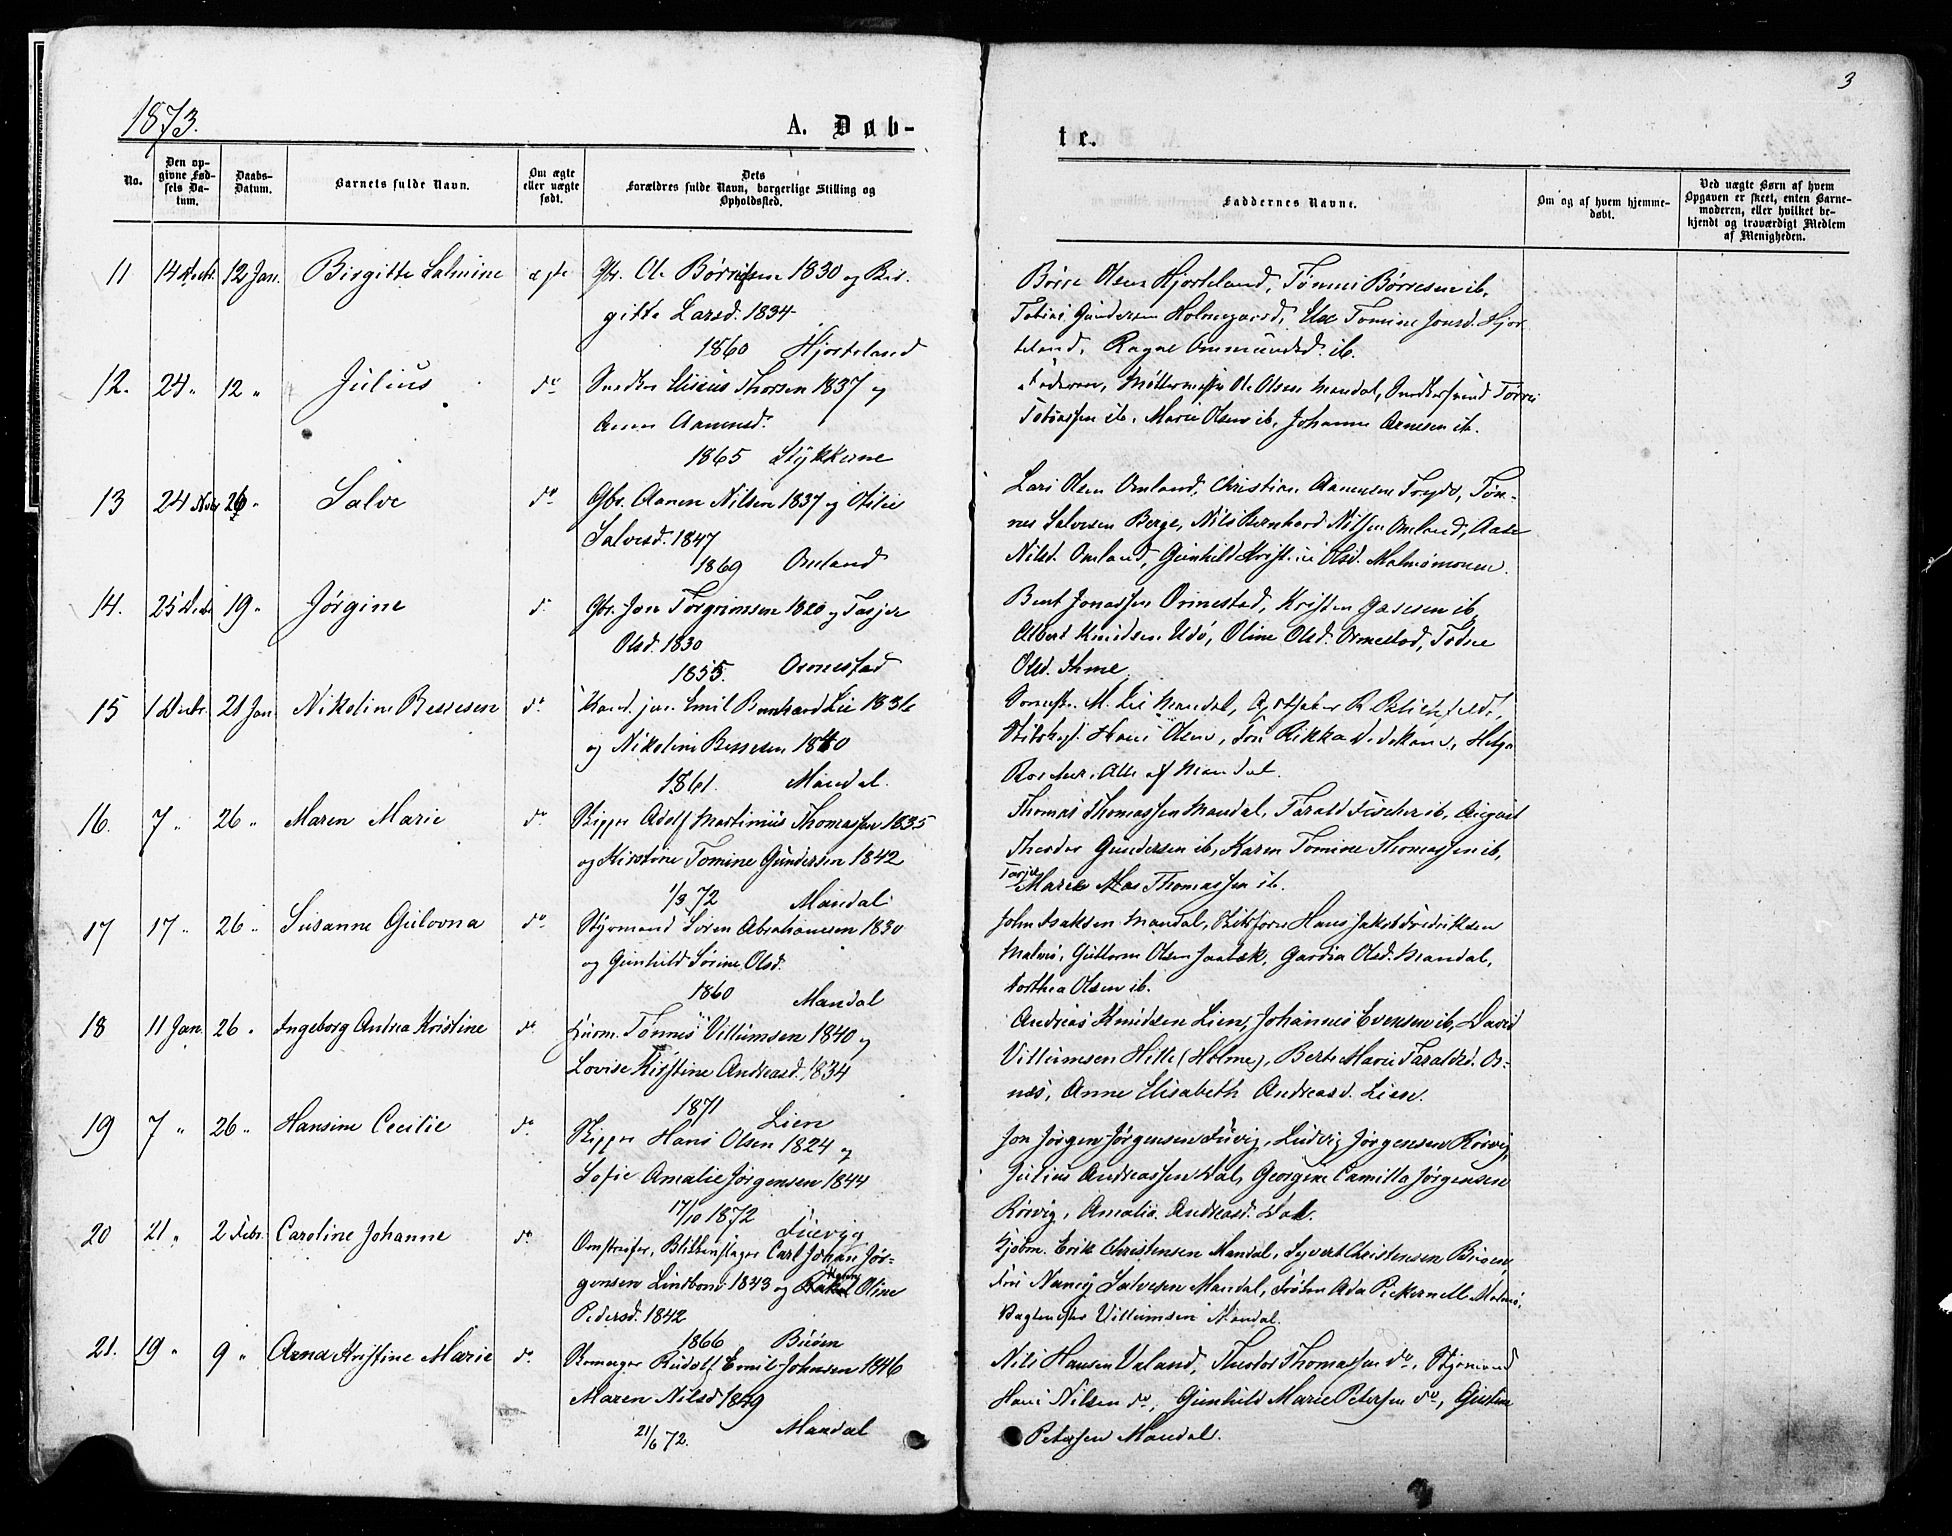 3
1873.
A. Døb-
te.
No.
Den op-
givne Fød-
sels Da-
tum.
Daabs-
Datum.
Barnets fulde Navn.
Om ægte
eller uægte
født.
Dets
Forældres fulde Navn, borgerlige Stilling og
Opholdssted.
Faddernes Navne.
Om og af hvem hjemme-
døbt.
Ved uægte Børn af hvem
Opgaven er skeet, enten Barne-
moderen, eller hvilket be-
kjendt og troværdigt Medlem
af Menigheden.
11 14 Decbr. 12 Jan. Birgitte Salmine ægte Gbr. Ole Børresen 1830 og Bir-
gitte Larsd. 1834
1860 Hjorteland
Børre Olsen Hjorteland, Tønnes Børresen ib,
Tobias Gundersen Holmegaard, Tomine Jonsd. Hjor-
teland, Ragnl Ommundsd. ib.
12. 24 " 12 " Julius do Snedker Thorsen 1837 og
Anne Aanensd.
1865 Stykkerne
Faderen, Ole Olsen Mandal, Snedkersvend Tørres
Tobiassen ib, Marie Olsen ib, Johanne Arnesen ib.
13 24 Nov 26 " Salve do Gbr. Aanen Nilsen 1837 og Otilie
Salvesd. 1847
1869 Omland
Lars Olsen Omland, Christian Aanensen Tredo, Tøn-
nes Salvesen Berge, Nils Bernhard Nilsen Omland, Aase
Nilsd. Omland, Gunhild Kristine Olsd. Malmømonen.
14. 25 Decbr 19 " Jørgine do Gbr. Jon Torgrimsen 1820 og Tasjer
Olsd. 1830
1855. Ormestad
Bent Jonassen Ormestad, Kristen ib,
Albert Knudsen Udø, Oline Olsd. Ormestad, Todne
Olsd. Ihme.
15 1 Decbr. 21 Jan Nikoline Bessesen do Kand. jur. Emil Bernhard Lie 1836
og Nikoline Bessesen 1840
1861. Mandal.
M. Lie Mandal,
Hans Olsen, Frk Rikka Hedekan, Helga
Alle af Mandal.
16. 7 " 26 " Maren Marie do Skipper Adolf Martinius Thomassen 1835
og Kirstine Tomine Gundersen 1842
1/3 72 Mandal
Thomas Thomassen Mandal, Tarald Fischer ib, August
Theodor Gundersen ib, Karen Tomine Thomassen ib,
Tarjer
Marie Thomassen ib.
17 17 " 26 " Susanne Gulovna do Styrmand Søren Abrahamsen 1830
og Gunhild Sørine Olsd.
1860 Mandal
John Isaksen Mandal, Hans Jakob Fredriksen
Malmø, Guttorm Olsen Jaabæk, Gardia Olsd. Mandal,
Dorthea Olsen ib.
18 11 Jan. 26 " Ingeborg Andrea Kristine do Tønnes Villumsen 1840 og
Lovise Kirstine Andreasd. 1834
1871 Lien
Andreas Knudsen Lien, Johannes Evensen ib, David
Villumsen Hille (Holme), Berte Marie Taraldsd. Os-
næs, Anne Elisabeth Andreasd. Lien.
19 7 " 26 " Hansine Cecilie do Skipper Hans Olsen 1824 og
Sofie Amalie Jørgensen 1844
17/10 1872 Fuevig
Jon Jørgen Jørgensen Fuevig, Ludvig Jørgensen Rosvig,
Julius Andreassen Dal, Georgine Camilla Jørgensen
Rosvig, Amalia Andreasd. Dal.
20 21 " 2 Febr. Caroline Johanne do Omstreifer, Blikkenslager Carl Johan Jør-
gensen Lindbom 1843 og Oline
Pedersd. 1842
1866 Buøen
Kjøbm. Erik Christensen Mandal, Syvert Christensen Buøen,
Fru Nancy Salvesen Mandal, Frøken Ada Pickernell Malmø,
Villumsen Mandal.
21. 19 " 9 " Arna Kristine Marie do Rudolf Emil Johnsen 1846
Maren Nilsd 1849
21/6 72. Mandal
Nils Hansen Valand, Theodor Thomassen do, Styrmand
Hans Nilsen do, Gunhild Marie Petersen do, Gustava
Petersen Mandal.